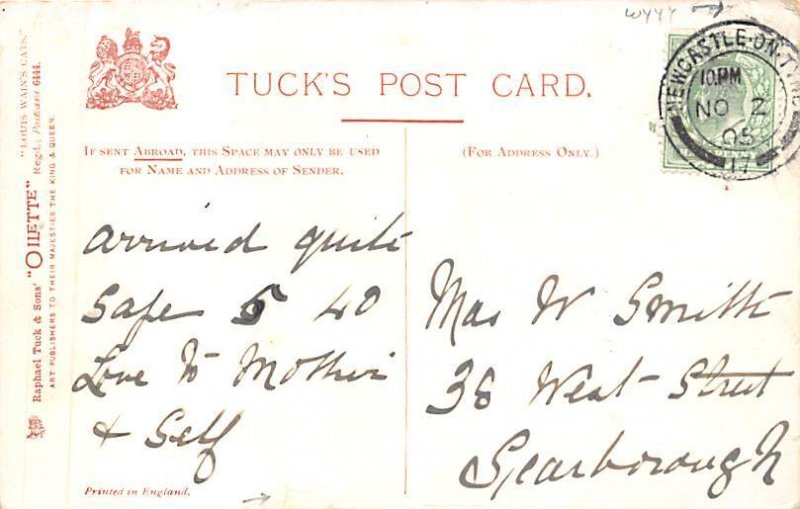 wyyy
TUCK'S POST CARD.
NEWCASTLE-ON-TYNE
10.PM
NO 2
05
17
IF SENT ABROAD, THIS SPACE MAY ONLY BE USED
FOR NAME AND ADDRESS OF SENDER.
(FOR ADDRESS ONLY.)
"LOUIS WAIN'S CATS."
Regd., Postcard 6444.
Raphael Tuck & Sons' "OILETTE"
ART PUBLISHERS TO THEIR MAJESTIES THE KING & QUEEN.
arrived quite
safe 5 40
Love to Mother
& Self
Mrs W Smith
38 West Street
Scarborough
Printed in England.